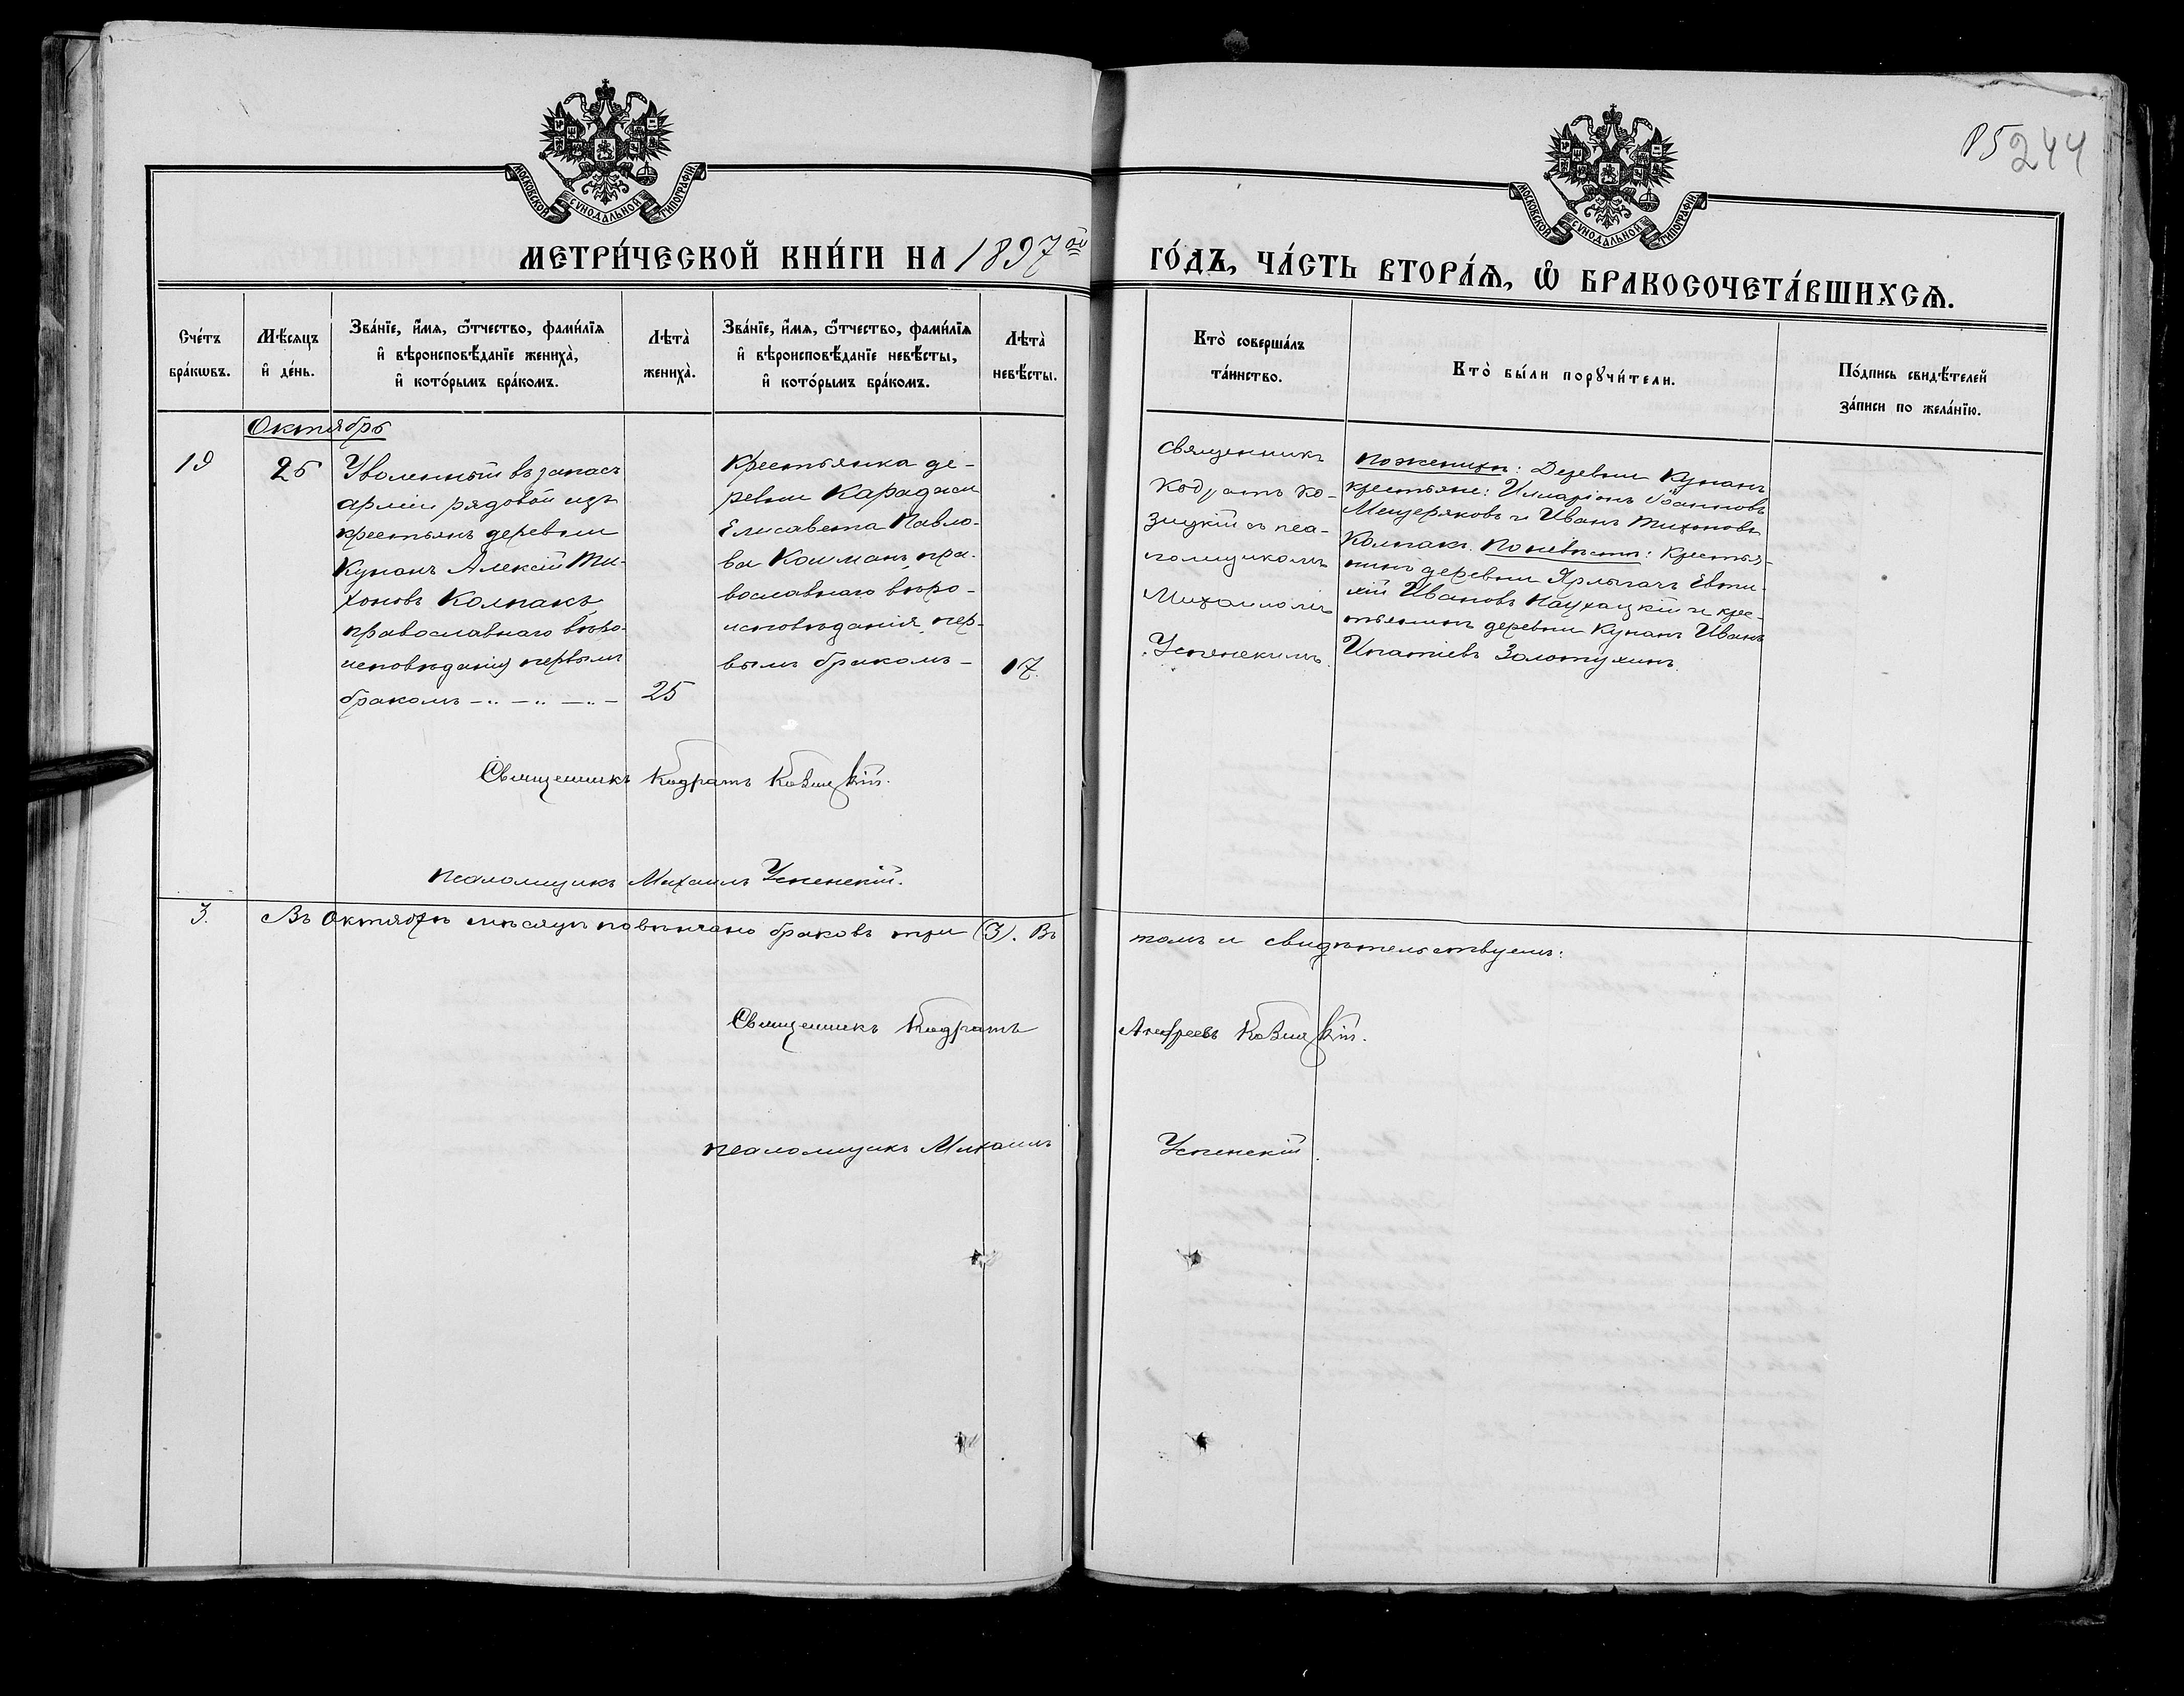 85 244
МОСКОВСКОЙ СѴНОДАЛЬНОЙ ТИПОГРАФІИ
МОСКОВСКОЙ СѴНОДАЛЬНОЙ ТИПОГРАФІИ
МЕТРИ́ЧЕСКОЙ КНИ́ГИ НА 1897ой
ГО́ДЪ, ЧА́СТЬ ВТОРА́Ѧ, Ѽ БРАКОСОЧЕТА́ВШИХСѦ.
Сче́тъ
бра́кѡвъ.
Мѣ́сяцъ
и҆ де́нь.
Зва́нїе, и҆́мя, ѻ҆́тчество, фами́лїя
и҆ вѣроисповѣ́данїе жениха̀,
и҆ кото́рымъ бра́комъ.
Лѣта̀
жениха̀.
Зва́нїе, и҆́мя, ѻ҆́тчество, фами́лїя
и҆ вѣроисповѣ́данїе невѣ́сты,
и҆ кото́рымъ бра́комъ.
Лѣта̀
невѣ́сты.
Кто̀ соверша́лъ
та́инство.
Кто̀ бы́ли порꙋчи́тели.
По́дпись свидѣ́телей
за́писи по жела́нїю.
Октябрь
19
26
Уволенный въ запасъ
арміи рядовой изъ
крестьянъ деревни
Кунанъ Алексій Ти-
хоновъ Колпакъ,
православнаго вѣро-
исповѣданія первымъ
бракомъ
25
Крестьянка де-
ревни Караджи
Елисавета Павло-
ва Кошманъ, пра-
вославнаго вѣро-
исповѣданія, пер-
вымъ бракомъ
17.
Священникъ
Кодратъ Ко-
зицкій съ пса-
ломщикомъ
Михаиломъ
Успенскимъ.
По женихѣ: Деревни Кунанъ
крестьяне: Илларіонъ Іоанновъ
Мещеряковъ и Иванъ Тихоновъ
Колпакъ. По невѣстѣ: Крестья-
нинъ деревни Ярлыгачъ Евти-
хій Ивановъ и крес-
тьянинъ деревни Кунанъ Иванъ
Игнатіевъ Золотухинъ.
Священникъ Кодратъ Козицкій.
Псаломщикъ Михаилъ Успенскій.
3. Въ Октябрѣ мѣсяцѣ повѣнчано браковъ три (3). Въ томъ и свидѣтельствуемъ:
Священникъ Кодратъ Андреевъ Козицкій.
Псаломщикъ Михаилъ Успенскій.